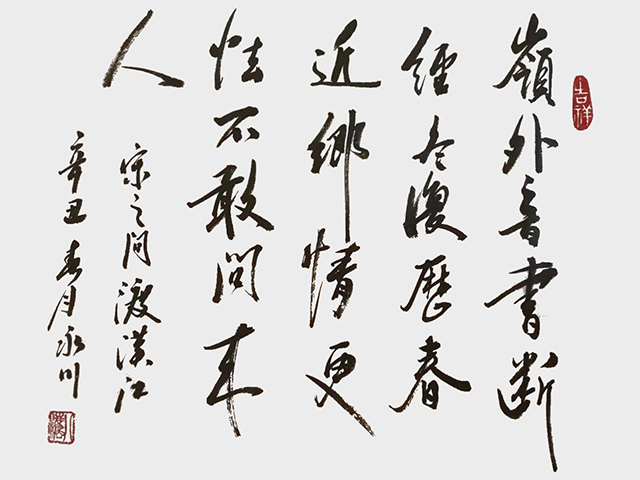 吉祥
嶺外音書断
經冬復歷春
近鄉情更
怯不敢问来
人
宋之问渡漢江
辛丑春月永川